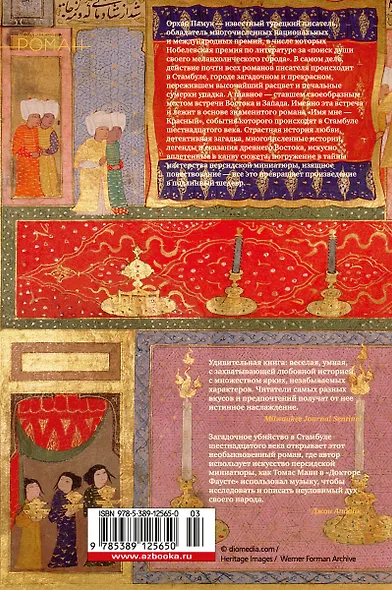 РОМАН
Орхан Памук — известный турецкий писатель,
обладатель многочисленных национальных
и международных премий, в числе которых
Нобелевская премия по литературе за «поиск души
своего меланхолического города». В самом деле,
действие почти всех романов писателя происходит
в Стамбуле, городе загадочном и прекрасном,
пережившем высочайший расцвет и печальные
сумерки упадка. А главное — ставшем своеобразным
местом встречи Востока и Запада. Именно эта встреча
и лежит в основе знаменитого романа «Имя мне —
Красный», события которого происходят в Стамбуле
шестнадцатого века. Страстная история любви,
детективная загадка, многочисленные истории,
легенды и сказания древнего Востока, искусно
вплетенные в канву сюжета, погружение в тайны
мастерства персидской миниатюры, изящное
повествование — все это превращает произведение
в подлинный шедевр.
Удивительная книга: веселая, умная,
с захватывающей любовной историей,
с множеством ярких, незабываемых
характеров. Читатели самых разных
вкусов и предпочтений получат от нее
истинное наслаждение.
Milwaukee Journal Sentinel
Загадочное убийство в Стамбуле
шестнадцатого века открывает этот
необыкновенный роман, где автор
использует искусство персидской
миниатюры, как Томас Манн в «Докторе
Фаусте» использовал музыку, чтобы
исследовать и описать неуловимый дух
своего народа.
Джон Апдайк
ISBN 978-5-389-12565-0
03
9 785389 125650
www.azbooka.ru
© diomedia.com /
Heritage Images / Werner Forman Archive